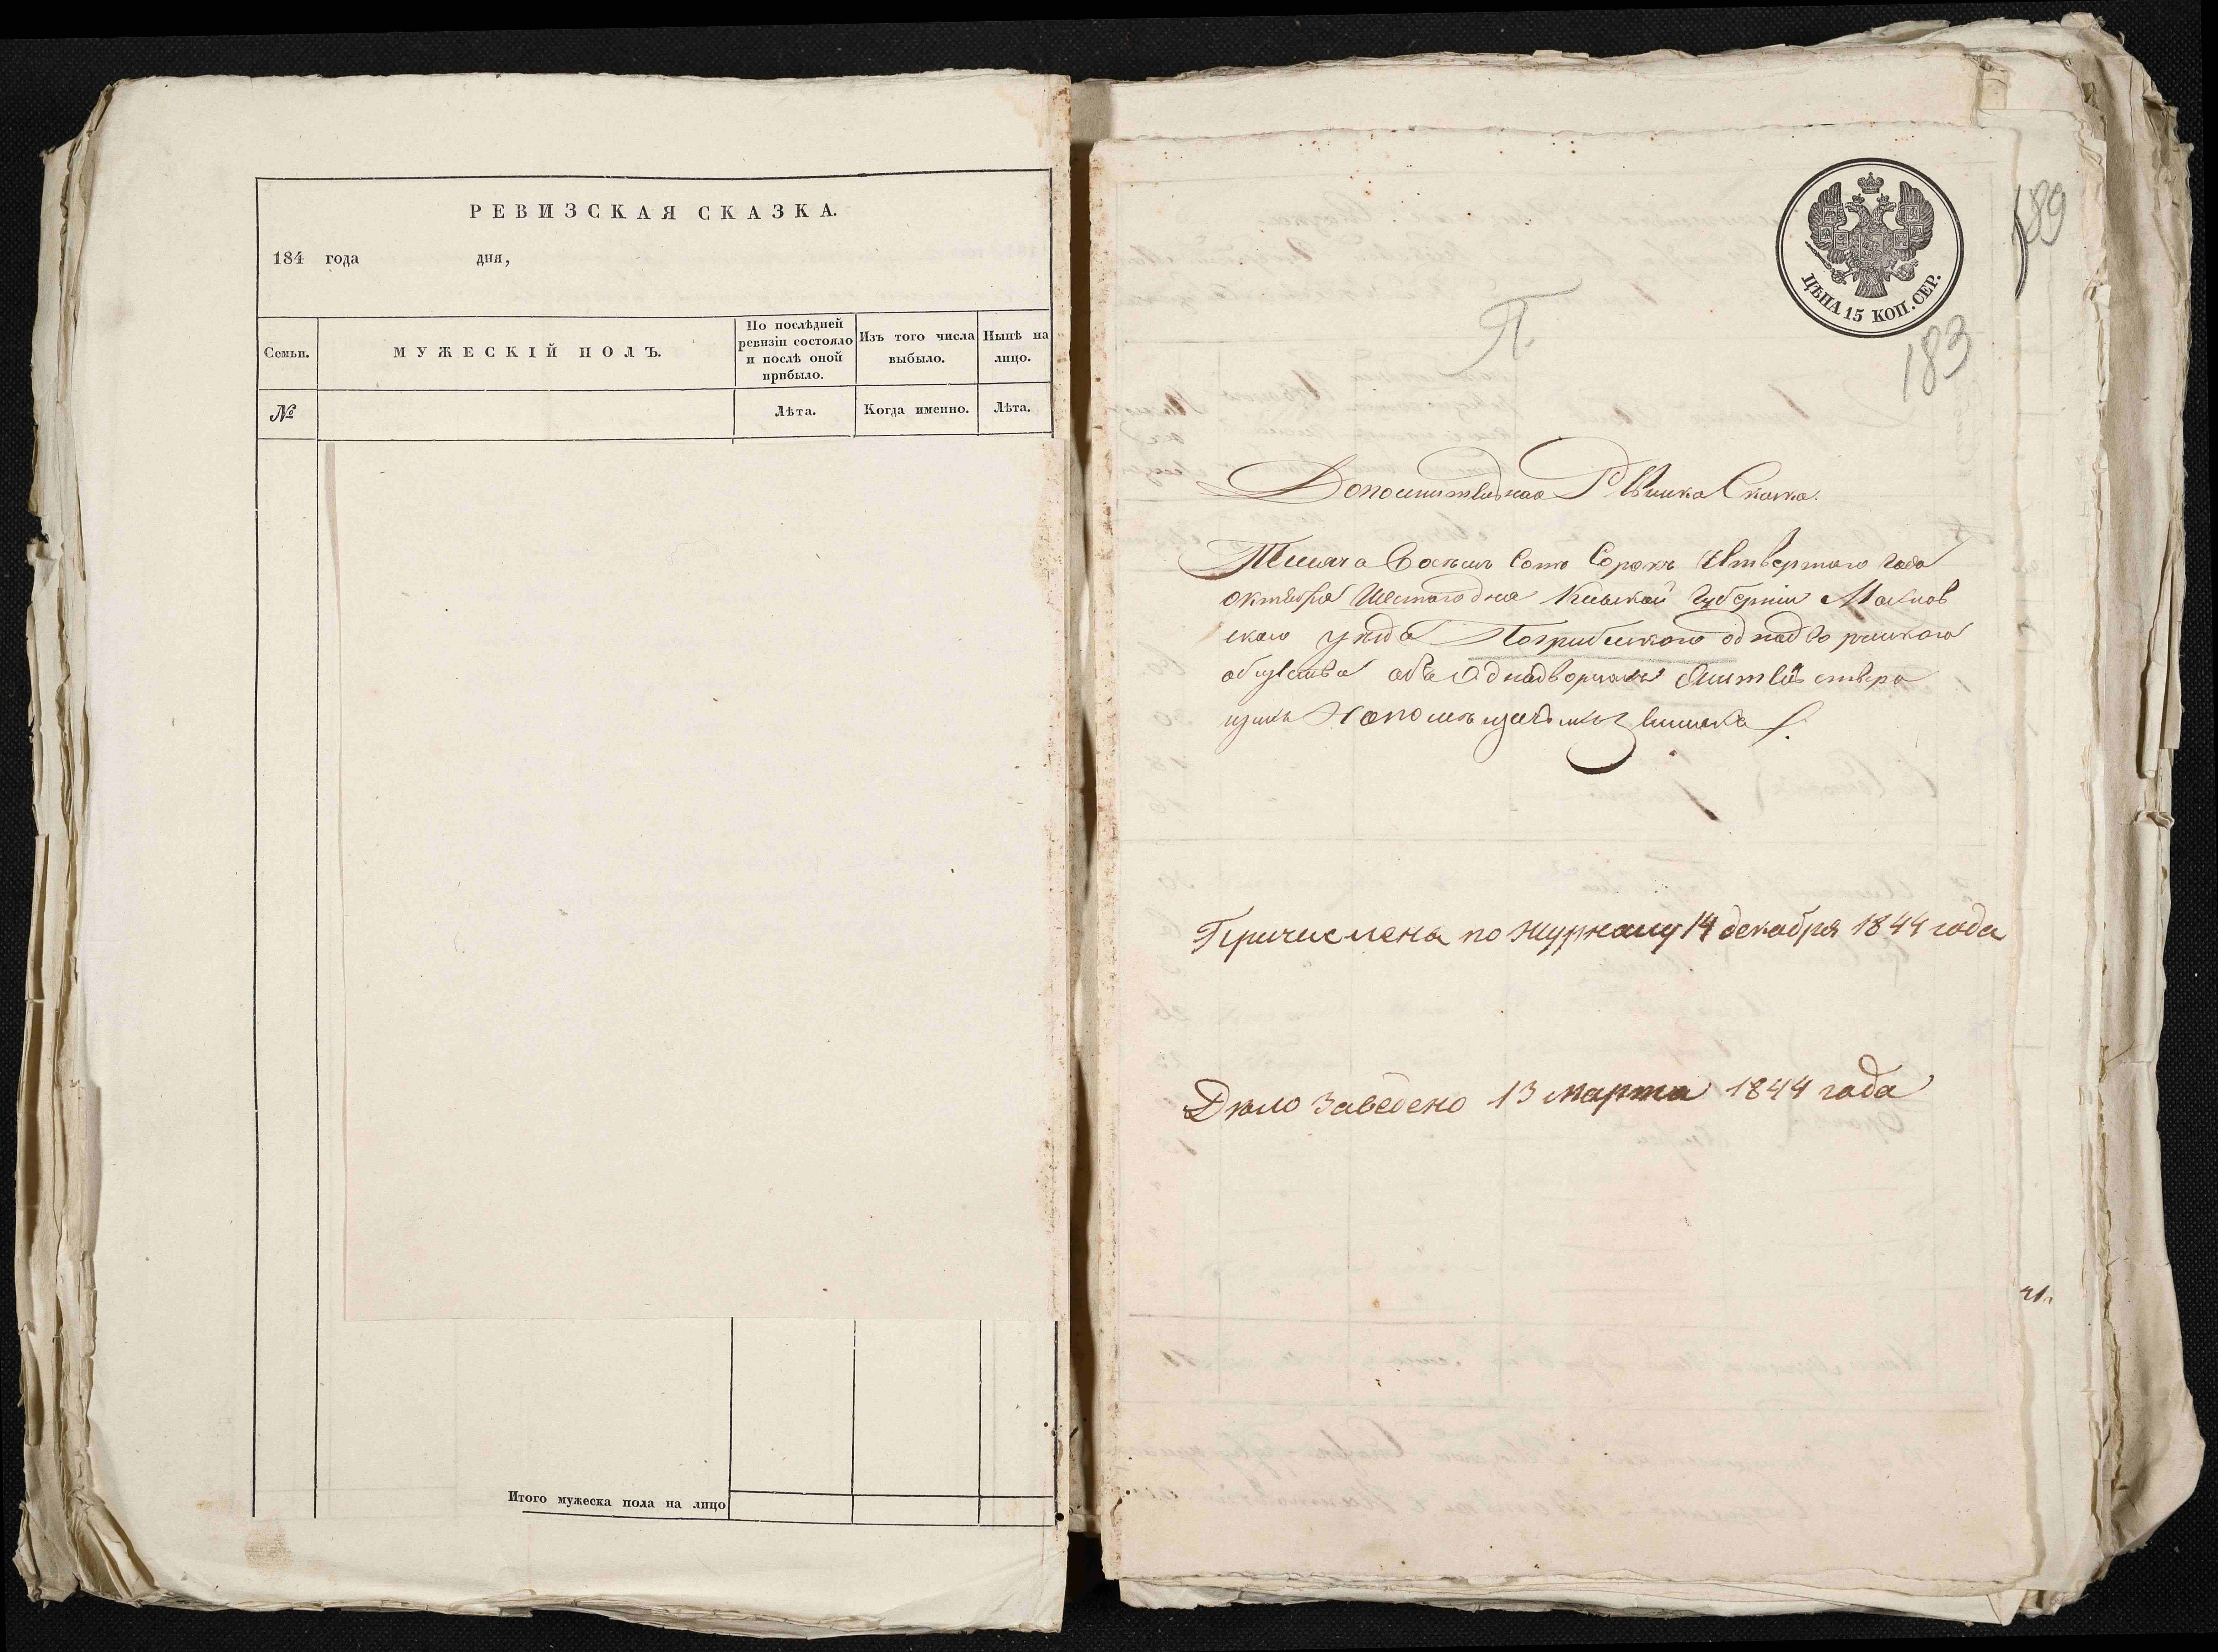 РЕВИЗСКАЯ СКАЗКА.
184 года дня,
Семьи.
МУЖЕСКІЙ ПОЛЪ.
По послѣдней
ревизіи состояло
и послѣ оной
прибыло.
Изъ того числа
выбыло.
Нынѣ на
лицо.
№
Лѣта.
Когда именно.
Лѣта.
Итого мужеска пола на лицо
ЦѢНА 15 КОП. СЕР.
189
183
П.
Сказка.
Восемь Сотъ Сорокъ Четвертаго Года
Октября Шестаго дня Кіевской Губерніи Махнов
скаго уѣзда Погребискаго однодворческаго
общества объ Однодворцахъ
Причислена по журналу 14 декабря 1844 года
Дѣло Заведено 13 марта 1844 года